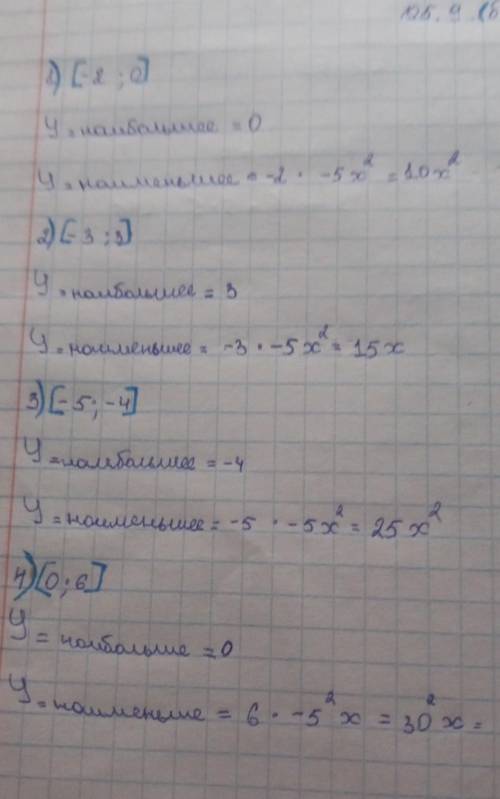 1) [-2 ; 0]
У = наибольшее = 0
У = наименьшее = -2 · -5x² = 10x²
2) [-3 ; 3]
У = наибольшее = 3
У = наименьшее = -3 · -5x² = 15x
3) [-5 ; -4]
У = наибольшее = -4
У = наименьшее = -5 · -5x² = 25x²
4) [0 ; 6]
У = наибольше = 0
У = наименьше = 6 · -5²x = 30²x =